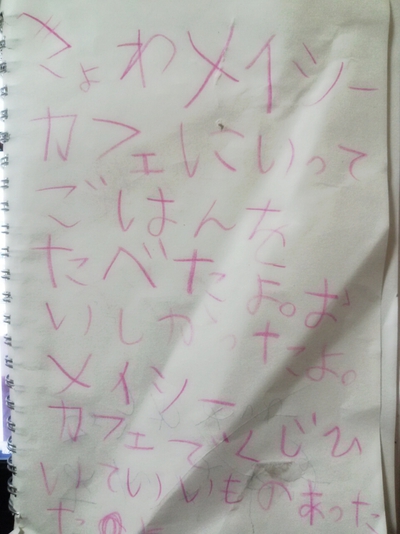 きょわメイシー
カフェにいって
ごはんを
たべたよ。お
いしかったよ。
メイシー
カフェでくじひ
いていいものあった